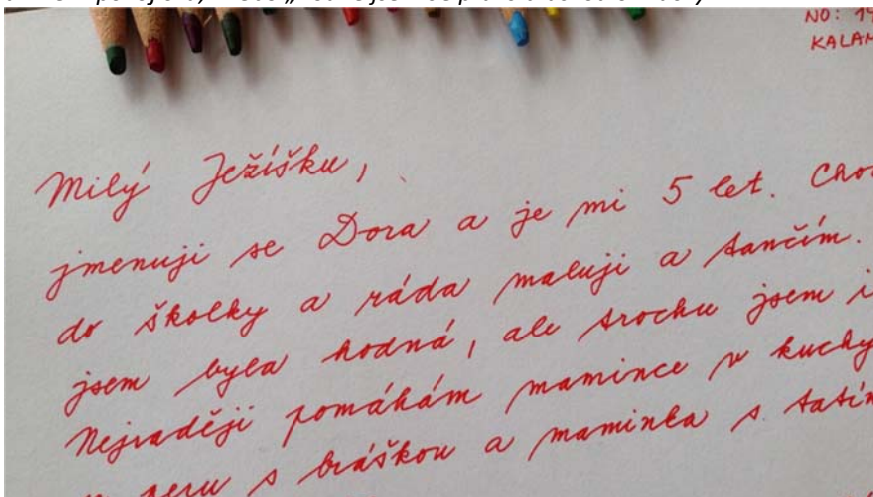 NO: 
KALAM
Milý Ježíšku,
jmenuji se Dora a je mi 5 let. Cho
do školky a ráda maluji a tančím.
jsem byla hodná, ale trochu jsem i
Nejraději pomáhám mamince v kuchy
peru s bráškou a maminka s tatín